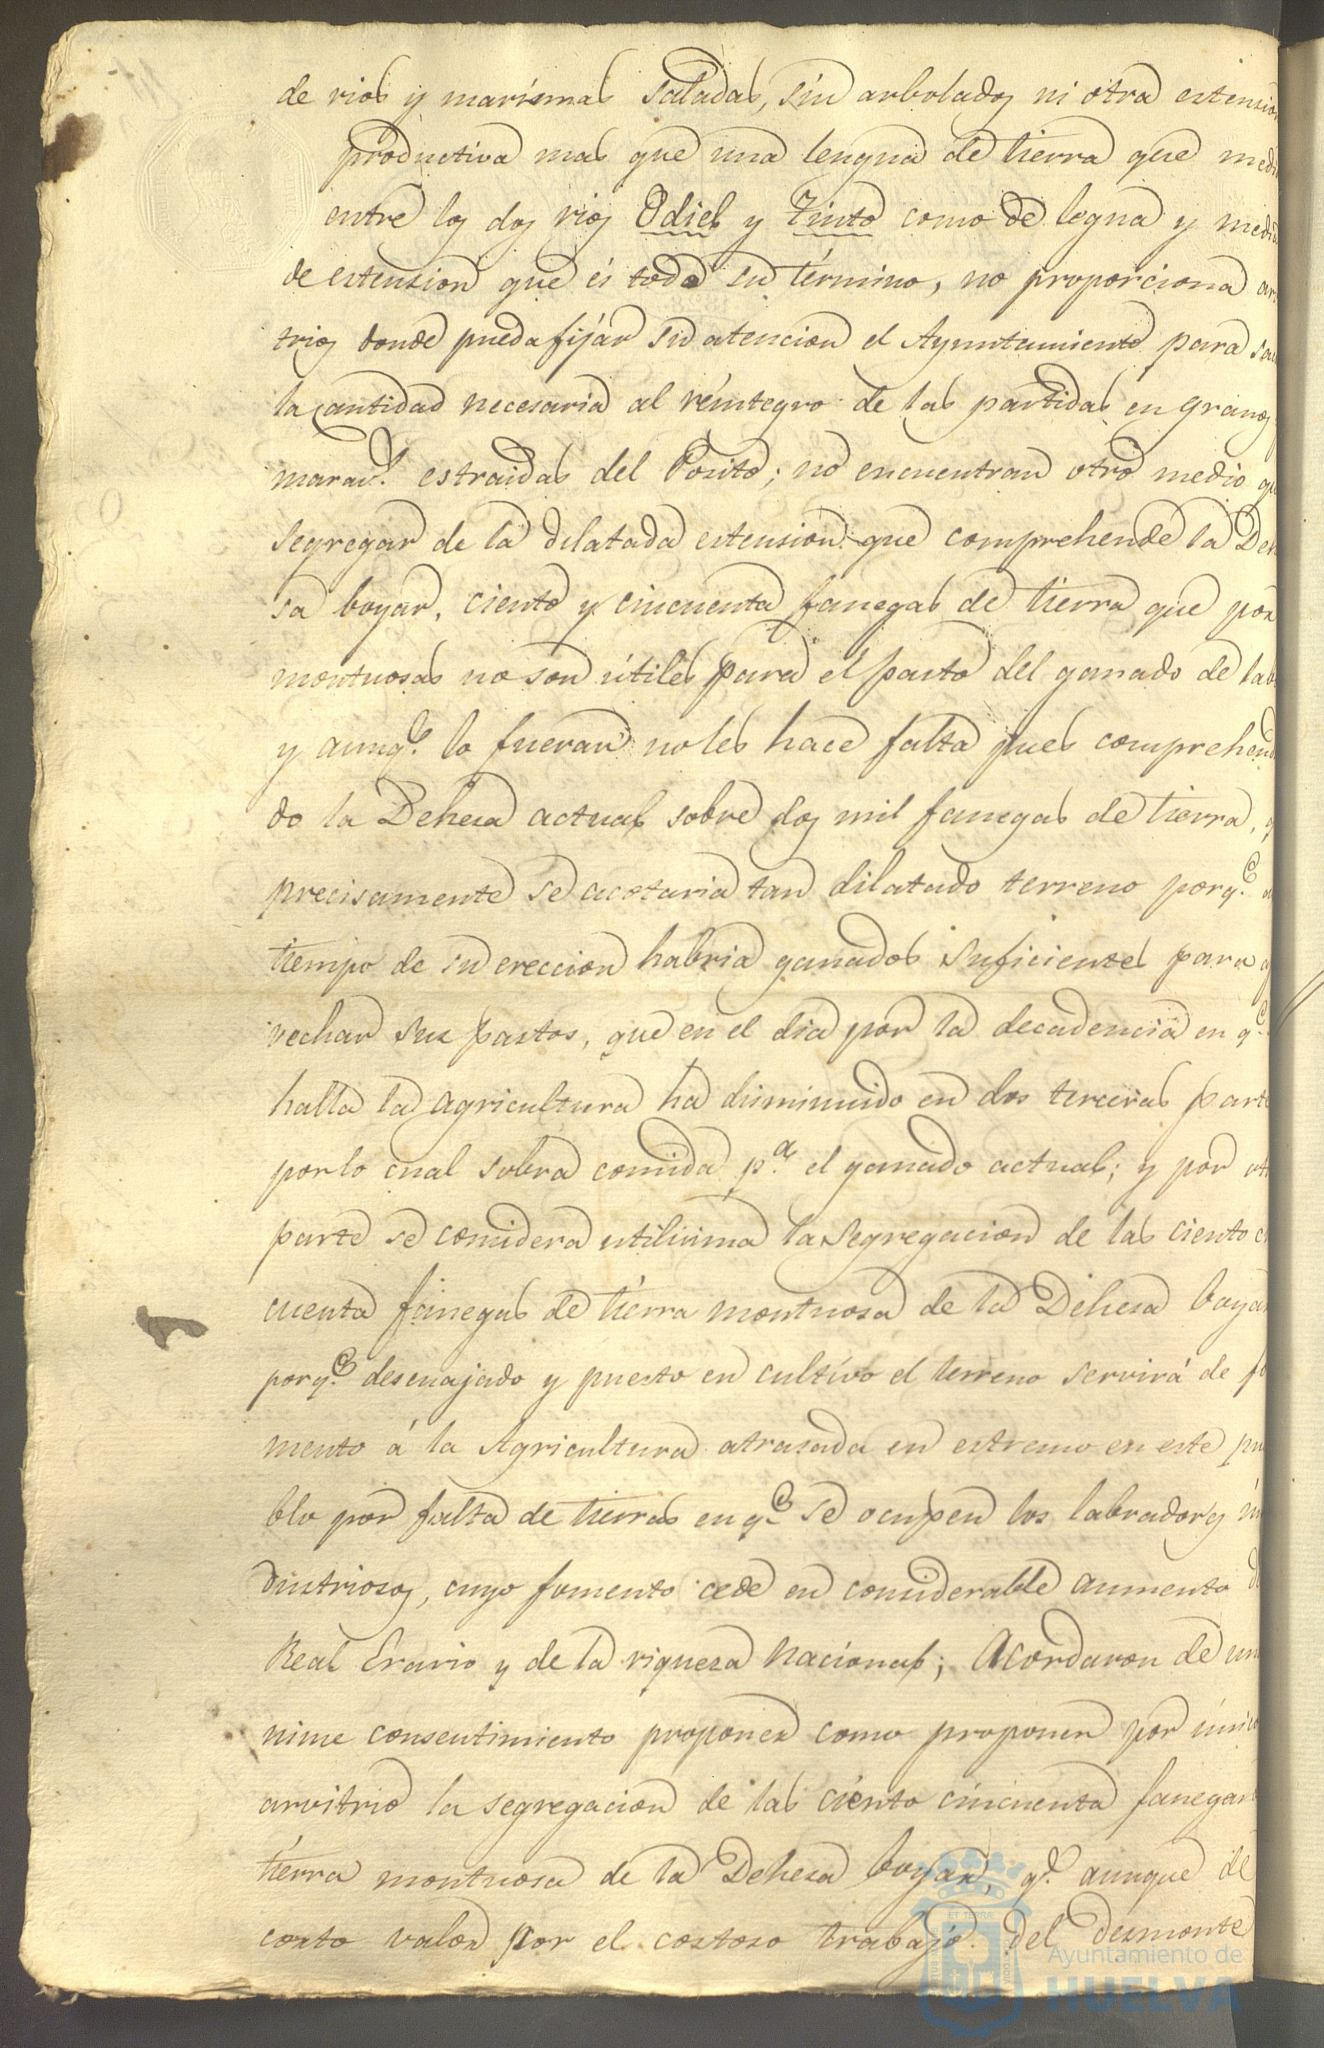 de rios y marismas saladas, sin arbolados ni otra estensio
productiva mas que una lengua de tierra que medi
entre los dos rios Odiel y Tinto como de legua y media
de estension que és todo su término, no proporciona ar
trios donde pueda fijár su atencion el Ayuntamiento para sac
la cantidad necesaria al reintegro de las partidas en granos
marav.s estraidas del Posito; no encuentran otro medio qu
segregar de la dilatada estension que comprehende la Deh
sa boyar, ciento y cincuenta fanegas de tierra que por
montuosas no son útiles para el pasto del ganado de lab
y aunq.e lo fueran no les hace falta pues comprehend
do la Dehesa actual sobre dos mil fanegas de tierra, q
precisamente se acotaria tan dilatado terreno porq.e a
tiempo de su ereccion habria ganados suficientes para a
vechar sus pastos, que en el dia por la decadencia en q.e
halla la agricultura ha disminuido en dos terceras parte
por lo cual sobra comida p.a el ganado actual; y por ot
parte se considera utilisima la segregacion de las ciento ci
cuenta fanegas de tierra montuosa de la Dehesa boyar
porq.e descuajado y puesto en cultivo el terreno servirá de fo
mento á la Agricultura atrasada en estremo en este pu
blo por falta de tierras en q.e se ocupen los labradores in
dustriosos, cuyo fomento cede en considerable aumento de
Real Erario y de la riqueza nacional; Acordaron de una
nime consentimiento proponer como proponen por único
arvitrio la segregacion de las ciento cincuenta fanegas
tierra montuosa de la Dehesa boyar, q.e aunque de
corto valor por el costoso trabajo del desmonte
Ayuntamiento de
HUELVA